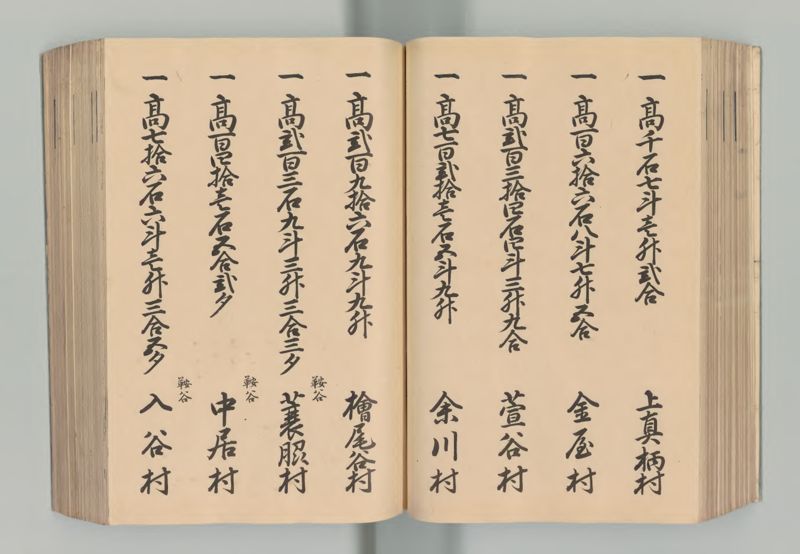 一高千石七斗壱升弐合 上真柄村
一高百六拾六石八斗七升五合 金屋村
一高弐百三拾四石四斗三升九合 萱谷村
一高七百弐拾壱石五斗九升 余川村
一高弐百九拾六石九斗九升 檜尾谷村
一高弐百三石九斗三升三合三夕 鞍谷 蓑脇村
一高百四拾壱石五合弐夕 鞍谷 中居村
一高七拾六石六斗壱升三合五夕 鞍谷 入谷村